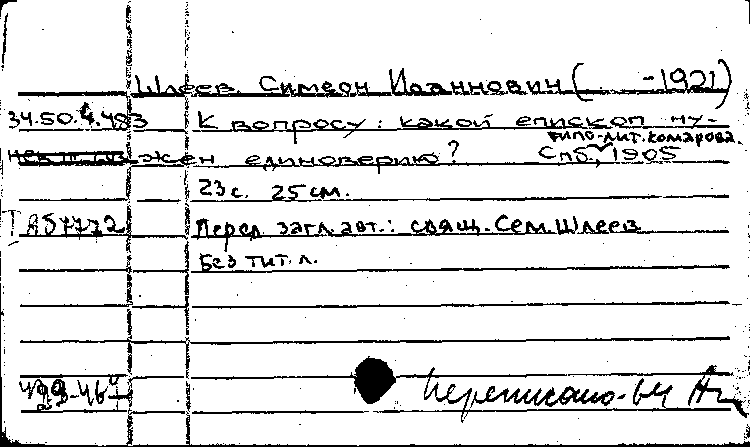 Шлеев Симеон Иоаннович ( -1921)
34.50.4.483 К вопросу: какой епископ ну-
жен единоверию? типо-лит. Комарова.
Спб., 1905
23 с. 25 см.
ТА57772 Перед загл. авт.: свящ. Сем. Шлеев
Без тит. л.
Переписано-64